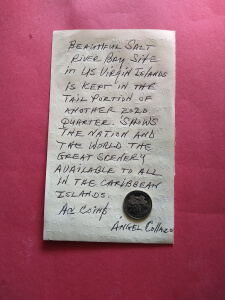 BEAUTIFUL SALT
RIVER BAY SITE
IN US VIRGIN ISLANDS
IS KEPT IN THE
TAIL PORTION OF
ANOTHER 2020
QUARTER. SHOWS
THE NATION AND
THE WORLD THE
GREAT SCENERY
AVAILABLE TO ALL
IN THE CARIBBEAN
ISLANDS.
COINS
ÁNGEL COLLAZO